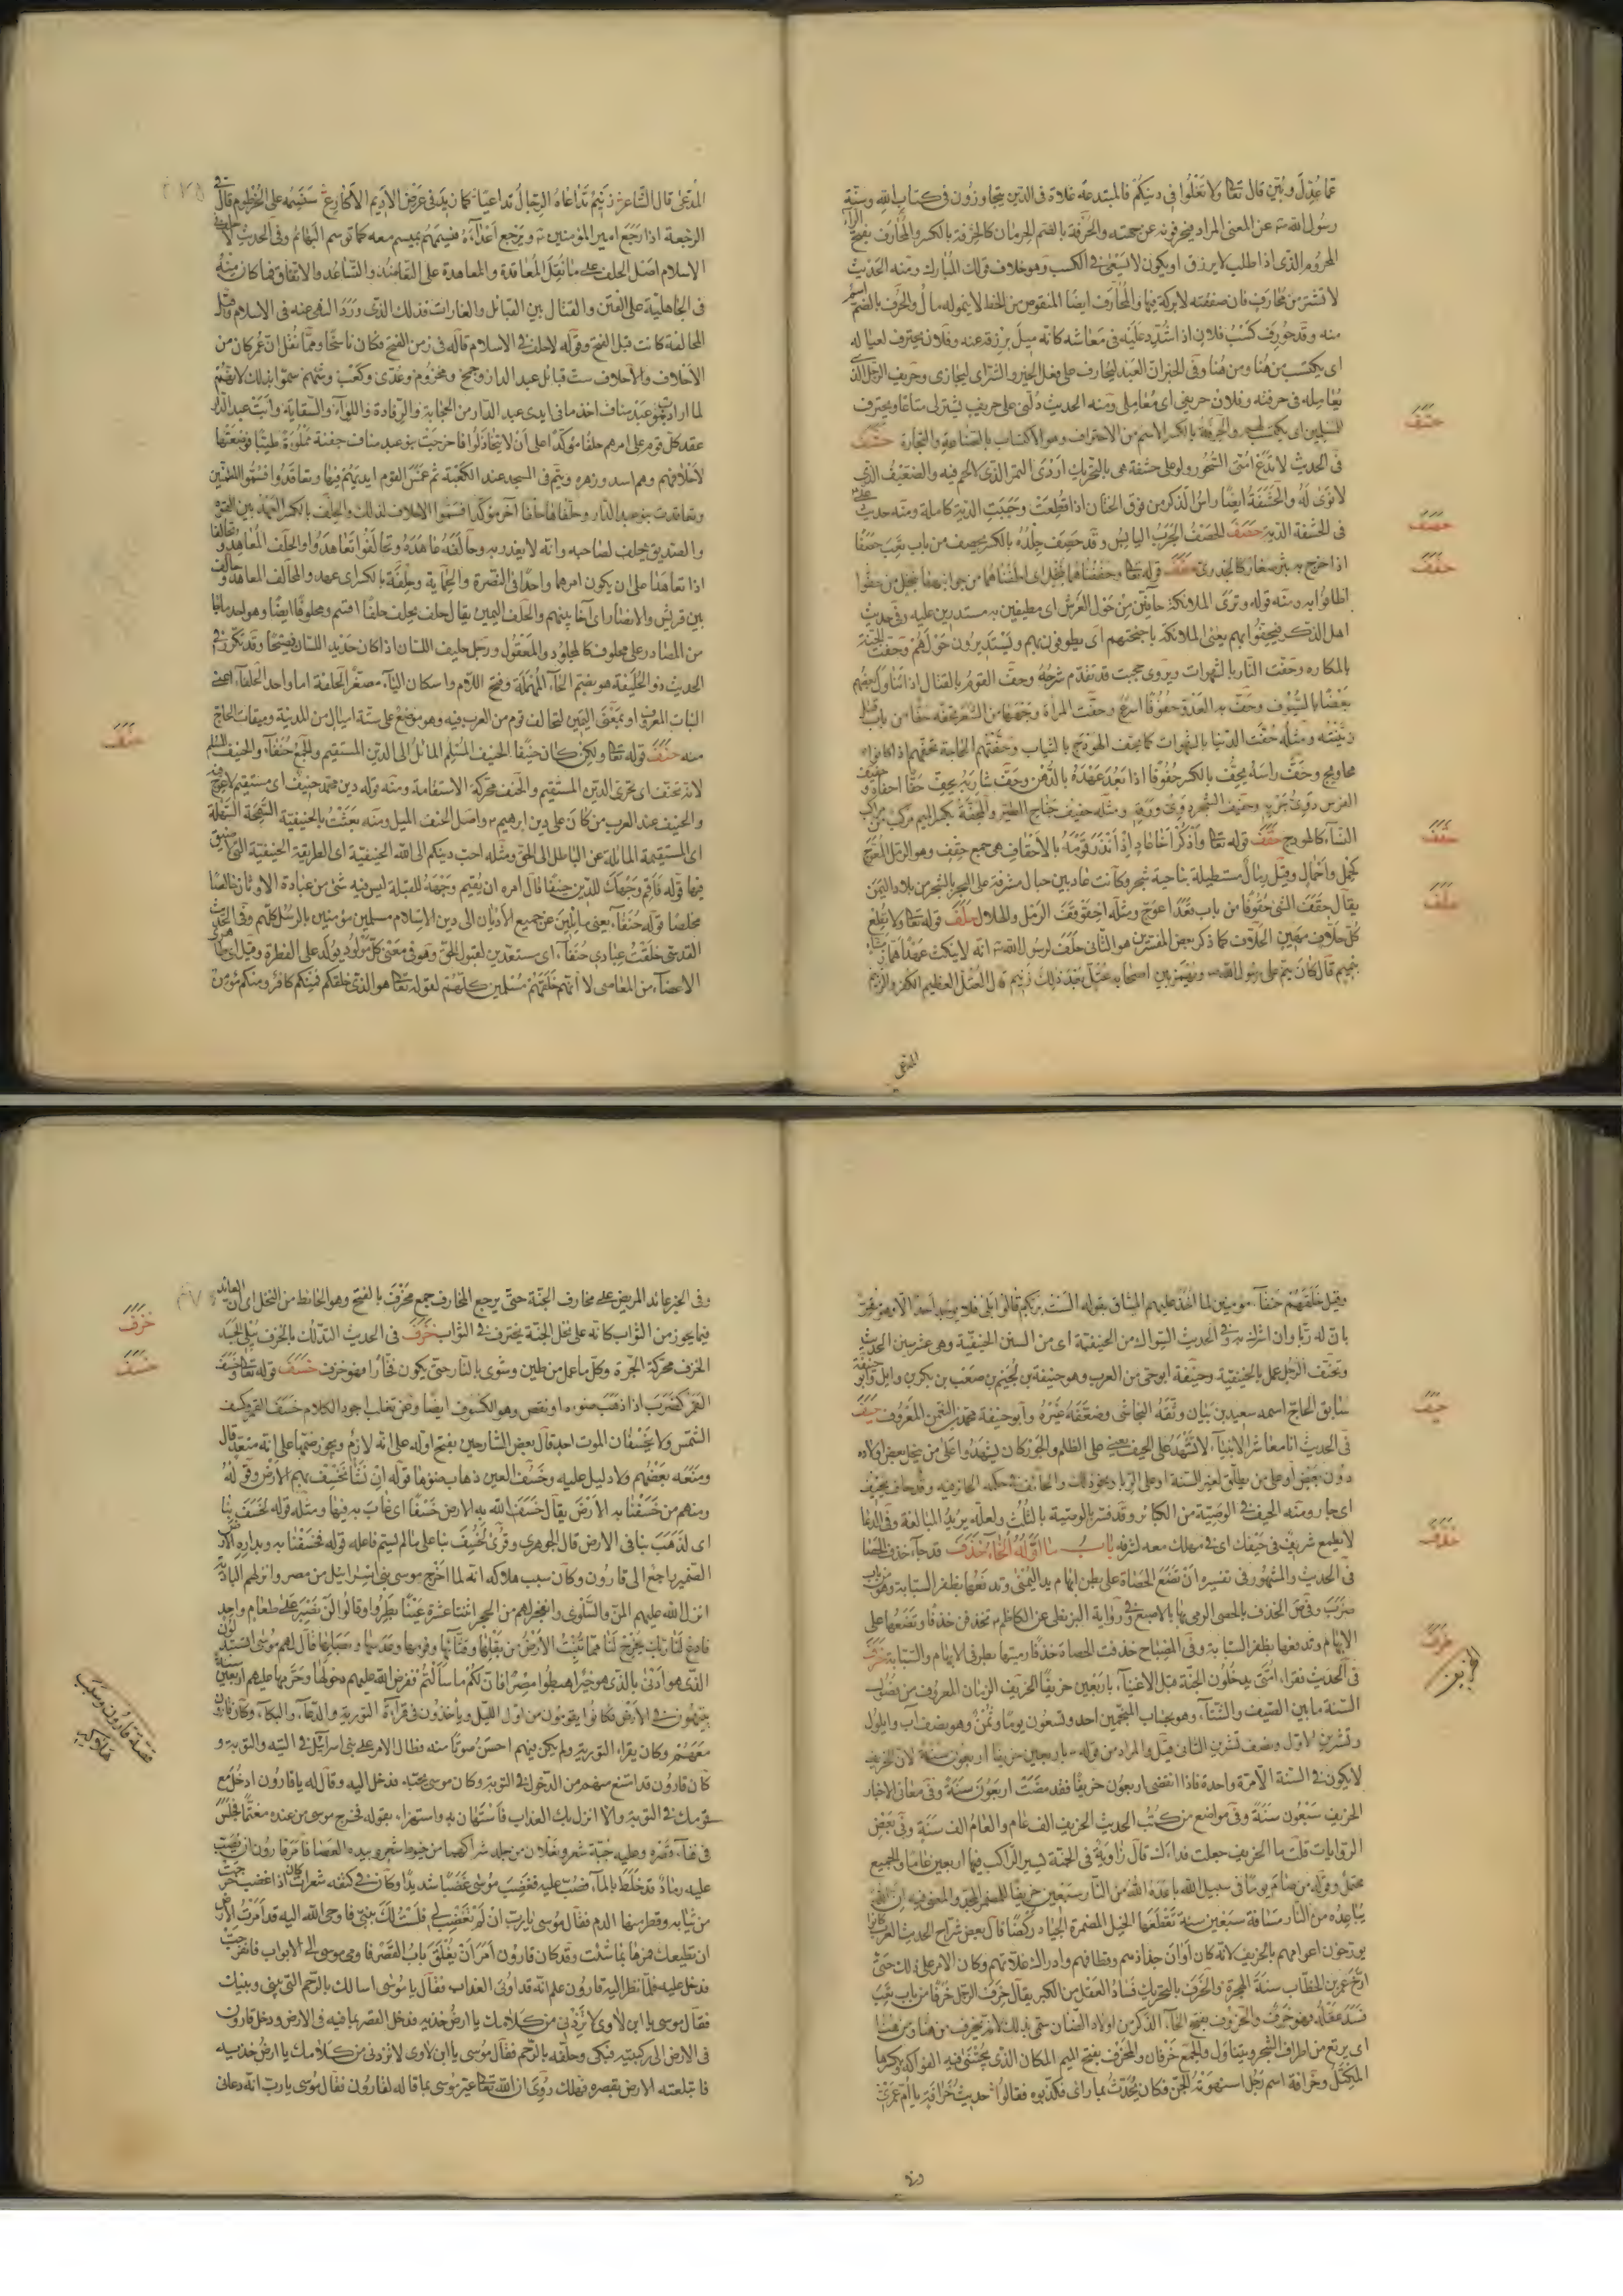 عما عدل وبين قال تعالى ولا تغلوا في دينكم فالمبتدعة غلاة في الدين يتجاوزون في كتاب الله وسنة
رسول الله عن المعنى المراد فيحرفونه عن جهته والحرفة بالضم الحرمان كالحرفة بالكسر والمحارف بفتح الراء
المحروم الذي اذا طلب لا يرزق او يكون لا يسعى في الكسب وهو خلاف قولك المبارك ومنه الحديث
لا تشتر من محارف فان صفقته لا بركة فيها والمحارف ايضا المنقوص من الحظ لا ينمو له مال والحرف بالضم اسم
منه وقد حورف كسب فلان اذا شدد عليه في معاشه كانه ميل برزقه عنه وفلان يحترف لعياله
اي يكتسب من هنا ومن هنا وفي الخبر ان العبد ليحارف على عمله الخير والشر اي ليجازى وحريف الرجل الذي
يعامله في حرفته وفلان حريفي اي معاملي ومنه الحديث دلني على حريف يشتري متاعا ويحترف
للمسلمين اي يكتسب لهم والحرفة بالكسر الاسم من الاحتراف وهو الاكتساب بالصناعة والتجارة حشف
في الحديث لا تدع امتي السحور ولو على حشفة هي بالتحريك اردى التمر الذي لا لحم فيه والضعيف الذي
لا نوى له والحشفة ايضا راس الذكر من فوق الختان اذا قطعت وجبت الدية كاملة ومنه حديث علي
في الحشفة الدية حصف الحصف الجرب اليابس وقد حصف جلده بالكسر يحصف من باب تعب حصفا
اذا خرج به بثر صغار كالجدري حفف قوله تعالى وحففناهما بنخل اي اطفناهما من جوانبهما بنخل من حفوا
اطافوا به ومنه قوله وترى الملائكة حافين من حول العرش اي مطيفين به مستديرين عليه وفي حديث
اهل الذكر فيحفوا بهم يعني الملائكة باجنحتهم اي يطوفون بهم ويستديرون حولهم وحفت الجنة
بالمكاره وحفت النار بالشهوات ويروى حجبت قد تقدم شرحه وحف القوم بالقتال اذا تناول بعضهم
بعضا بالسيوف وحف به العدو حفوفا اسرع وحفت المراة وجهها من الشعر تحفه حفا من باب قتل
زينته ومثله حفت الدنيا بالشهوات كما يحف الهودج بالثياب وحفتهم الحاجة تحفهم اذا كانوا
محاويج وحف راسه يحف بالكسر حفوفا اذا بعد عهده بالدهن وحف شاربه يحف حفا احفاه وحفيف
الفرس دوي جريه وحفيف الشجر دوي ورقه ومثله حفيف جناح الطير والمحفة بكسر الميم مركب من مراكب
النساء كالهودج حقف قوله تعالى واذكر اخا عاد اذ انذر قومه بالاحقاف هي جمع حقف وهو الرمل المعوج
كحمل واحمال وقيل رمال مستطيلة بناحية شحر وكانت عاد بين جبال مشرفة على البحر بالشحر من بلاد اليمن
يقال حقف الشي حقوفا من باب قعد اعوج ومثله احقوقف الرمل والهلال حلف قوله تعالى ولا تطع
كل حلاف مهين الحلاف كما ذكر بعض المفسرين هو الثاني حلف لرسول الله انه لا ينكث عهدا هماز مشاء
بنميم قال كان ينم على رسول الله ويهمز بين اصحابه عتل بعد ذلك زنيم قال العتل العظيم الكفر والزنيم
المدعي
حشف
حصف
حفف
حقف
حلف
المدعي قال الشاعر زنيم تداعاه الرجال تداعيا كما زيد في عرض الاديم الاكارع سنسمه على الخرطوم قال في
الرجعة اذا رجع امير المؤمنين ويرجع اعداؤه فيسمهم بميسم معه كما توسم البهائم وفي الحديث لا حلف في
الاسلام اصل الحلف على ما نقل المعاقدة والمعاهدة على التعاضد والتساعد والاتفاق فما كان منه
في الجاهلية على الفتن والقتال بين القبائل والغارات فذلك الذي ورد النهي عنه في الاسلام وقيل
المحالفة كانت قبل الفتح وقوله لا حلف في الاسلام قاله في زمن الفتح فكان ناسخا ومما نقل ان عمر كان من
الاحلاف والاحلاف ست قبائل عبد الدار وجمح ومخزوم وعدي وكعب وسهم سموا بذلك لانهم
لما ارادت بنو عبد مناف اخذ ما في ايدي عبد الدار من الحجابة والرفادة واللواء والسقاية وابت عبد الدار
عقد كل قوم على امرهم حلفا مؤكدا على ان لا يتخاذلوا فاخرجت بنو عبد مناف جفنة مملوءة طيبا فوضعتها
لاحلافهم وهم اسد وزهره وتيم في المسجد عند الكعبة ثم غمس القوم ايديهم فيها وتعاقدوا فسموا المطيبين
وتعاقدت بنو عبد الدار وحلفاها حلفا آخر مؤكدا فسموا الاحلاف لذلك والحلف بالكسر العهد بين القوم
والصديق يحلف لصاحبه وانه لا يغدر به وحالفه عاهده وتحالفوا تعاهدوا والحلف المعاهد وتحالفا
اذا تعاهدا على ان يكون امرهما واحدا في النصرة والحماية وحلفة بالكسر اي عهد والمحالف المعاهد وحالف
بين قريش والانصار اي آخا بينهم والحلف اليمين يقال حلف يحلف حلفا اقسم ومحلوفا ايضا وهو احد ما جاء
من المصادر على محلوف كالمجلود والمعقول ورجل حليف اللسان اذا كان حديد اللسان فصيحا وقد تكرر في
الحديث ذو الحليفة هو بضم الحاء المهملة وفتح اللام واسكان الياء مصغر الحلفة اما واحد الحلفاء اعني
النبات المعروف او بمعنى اليمين لتحالف قوم من العرب فيه وهو موضع على ستة اميال من المدينة وميقات للحاج
منه حنف قوله تعالى ولكن كان حنيفا الحنيف المسلم المائل الى الدين المستقيم والجمع حنفاء والحنيف المسلم
لانه تحنف اي تحرى الدين المستقيم والحنف محركة الاستقامة ومنه قوله دين محمد حنيف اي مستقيم لا عوج فيه
والحنيف عند العرب من كان على دين ابرهيم واصل الحنف الميل ومنه بعثت بالحنيفية السمحة السهلة
اي المستقيمة المائلة عن الباطل الى الحق ومثله احب دينكم الى الله الحنيفية اي الطريقة الحنيفية التي لا ضيق
فيها قوله فاقم وجهك للدين حنيفا قال امره ان يقيم وجهه للقبلة ليس فيه شئ من عبادة الاوثان خالصا
مخلصا قوله حنفاء يعني مايلين عن جميع الاديان الى دين الاسلام مسلمين مؤمنين بالرسل كلهم وفي الحديث
القدسي خلقت عبادي حنفاء اي مستعدين لقبول الحق وهو في معنى كل مولود يولد على الفطرة وقيل اي طاهري
الاعضاء من المعاصي لا انهم خلقهم مسلمين كلهم لقوله تعالى هو الذي خلقكم فمنكم كافر ومنكم مؤمن
حنف
وقيل خلقهم حنفاء مؤمنين لما اخذ عليهم الميثاق بقوله الست بربكم قالوا بلى فلا يوجد احد الا وهو مقر
بان له ربا وان اشرك به وفي الحديث السواك من الحنيفية اي من السنن الحنيفية وهي عشر سنن الحديث
وتحنف الرجل عمل بالحنيفية وحنيفة ابو حي من العرب وهو حنيفة بن لجيم بن صعب بن بكر بن وايل وابو حنيفة
سابق الحاج اسمه سعيد بن بيان وثقه النجاشي وضعفه غيره وابو حنيفة محمد بن النعمن المعروف حيف
في الحديث انا معاشر الانبياء لا نشهد على الحيف يعني على الظلم والجور كان يشهدوا على من ينحل بعض اولاده
دون بعض او على من يطلق لغير السنة او على الربا ونحو ذلك والحائف في حكمه الجائر فيه وقد حاف يحيف
اي جار ومنه الحيف في الوصية من الكبائر وقد فسر بالوصية بالثلث ولعله يريد المبالغة وفي الدعا
لا يطمع شريف في حيفك اي في ميلك معه لشرفه باب ما اوله الخاء خذف قد جاء خذف الحصا
في الحديث والمشهور في تفسيره ان تضع الحصاة على بطن ابهام يد اليمنى وتدفعها بظفر السبابة وهو من باب
ضرب وفي ص الخذف بالحصى الرمي بها بالاصبع وفي رواية البزنطي عن الكاظم تخذفهن خذفا وتضعها على
الابهام وتدفعها بظفر السبابة وفي المصباح خذفت الحصاة خذفا رميتها بطرفي الابهام والسبابة خرف
في الحديث فقراء امتي يدخلون الجنة قبل الاغنياء باربعين خريفا الخريف الزمان المعروف من فصول
السنة ما بين الصيف والشتاء وهو بحساب المنجمين احد وتسعون يوما وثمن وهو نصف آب وايلول
وتشرين الاول ونصف تشرين الثاني قيل والمراد من قوله باربعين خريفا اربعون سنة لان الخريف
لا يكون في السنة الا مرة واحدة فاذا انقضى اربعون خريفا فقد مضت اربعون سنة وفي معاني الاخبار
الخريف سبعون سنة وفي مواضع من كتب الحديث الخريف الف عام والعام الف سنة وفي بعض
الروايات قلت ما الخريف جعلت فداك قال زاوية في الجنة يسير الراكب فيها اربعين عاما والجميع
محتمل وقوله من صام يوما في سبيل الله باعده الله من النار سبعين خريفا للمضمر المجد والمعنى فيه ان الله
يباعده من النار مسافة سبعين سنة تقطعها الخيل المضمرة الجياد ركضا قال بعض شراح الحديث العرب كانوا
يورخون اعوامهم بالخريف لانه كان اوان جذاذهم وقطافهم وادراك غلاتهم وكان الامر على ذلك حتى
ارخ عمر بن الخطاب سنة الهجرة والخرف بالتحريك فساد العقل من الكبر يقال خرف الرجل خرفا من باب تعب
فسد عقله وهو خرف والخروف بفتح الخاء الذكر من اولاد الضان سمي بذلك لانه يخرف من هنا ومن هنا
اي يرتع من اطراف الشجر ويتناول والجمع خرفان والمخرف بفتح الميم المكان الذي يجتنى فيه الفواكه وبكسرها
المكتل وخرافة اسم رجل استهوته الجن فكان يحدث بما راى فكذبوه فقالوا حديث خرافة يا ام عمرو
وفي
حيف
خذف
خرف
الخريف
وفي الخبر عائد المريض على مخارف الجنة حتى يرجع المخارف جمع مخرف بالفتح وهو الحائط من النخل اي ان العائد
فيما يحوز من الثواب كانه على نخل الجنة يخترف في الثواب خزف في الحديث التدلك بالخزف يبلي الجسد
الخزف محركة الجرة وكل ما عمل من طين وشوي بالنار حتى يكون فخارا فهو خزف خسف قوله تعالى وخسف
القمر كضرب اذا ذهب ضوءه او نقص وهو الكسوف ايضا وعن ثعلب اجود الكلام خسف القمر وكسف
الشمس ولا يخسفان لموت احد قال بعض الشارحين بفتح اوله على انه لازم ويجوز ضمها على انه متعد قال
ومنعه بعضهم ولا دليل عليه وخسف العين ذهاب ضوئها قوله ان نشا نخسف بهم الارض وقوله
ومنهم من خسفنا به الارض يقال خسف الله به الارض خسفا اي غاب به فيها ومثله قوله لخسف بنا
اي لذهب بنا في الارض قال الجوهري وقرئ لخسف بنا على ما لم يسم فاعله قوله فخسفنا به وبداره الارض
الضمير راجع الى قارون وكان سبب هلاكه انه لما اخرج موسى بني اسرائيل من مصر وانزلهم البادية
انزل الله عليهم المن والسلوى وانفجر لهم من الحجر اثنتا عشرة عينا بطروا وقالوا لن نصبر على طعام واحد
فادع لنا ربك يخرج لنا مما تنبت الارض من بقلها وقثائها وفومها وعدسها وبصلها قال لهم موسى اتستبدلون
الذي هو ادنى بالذي هو خير اهبطوا مصرا فان لكم ما سالتم ففرض الله عليهم دخولها وحرمها عليهم اربعين سنة
يتيهون في الارض فكانوا يقومون من اول الليل وياخذون في قراءة التورية والدعاء والبكاء وكان قارون
معهم وكان يقرا التورية ولم يكن فيهم احسن صوتا منه فطال الامر على بني اسرائيل في التيه والتوبة و
كان قارون قد امتنع منهم من الدخول في التوبة وكان موسى يحبه فدخل اليه وقال له يا قارون ادخل مع
قومك في التوبة والا انزل بك العذاب فاستهان به واستهزاء بقوله فخرج موسى من عنده مغتما فجلس
في فناء قصره وعليه جبة شعر ونعلان من جلد شراكهما من خيوط شعر بيده العصا فامر قارون ان يصب
عليه رماد قد خلط بالماء فصب عليه فغضب موسى غضبا شديدا وكان في كتفه شعرات كان اذا غضب خرجت
من ثيابه وقطر منها الدم فقال موسى يا رب ان لم تغضب لي فلست لك بنبي فاوحى الله اليه قد امرت الارض
ان تطيعك فمرها بما شئت وقد كان قارون امر ان يغلق باب القصر فاومى موسى الى الابواب فانفرجت
فدخل عليه فلما نظر اليه قارون علم انه قد اوتي العذاب فقال يا موسى اسالك بالرحم التي بيني وبينك
فقال موسى يا ابن لاوى لا تزدني من كلامك يا ارض خذيه فدخل القصر بما فيه في الارض ودخل قارون
في الارض الى ركبتيه فبكى وحلفه بالرحم فقال موسى يا ابن لاوى لا تزدني من كلامك يا ارض خذيه
فابتلعته الارض بقصره فهلك روي ان الله تعالى عير موسى بما قاله لقارون فقال موسى يا رب انه دعاني
خزف
خسف
قصة قارون وسبب
هلاكه